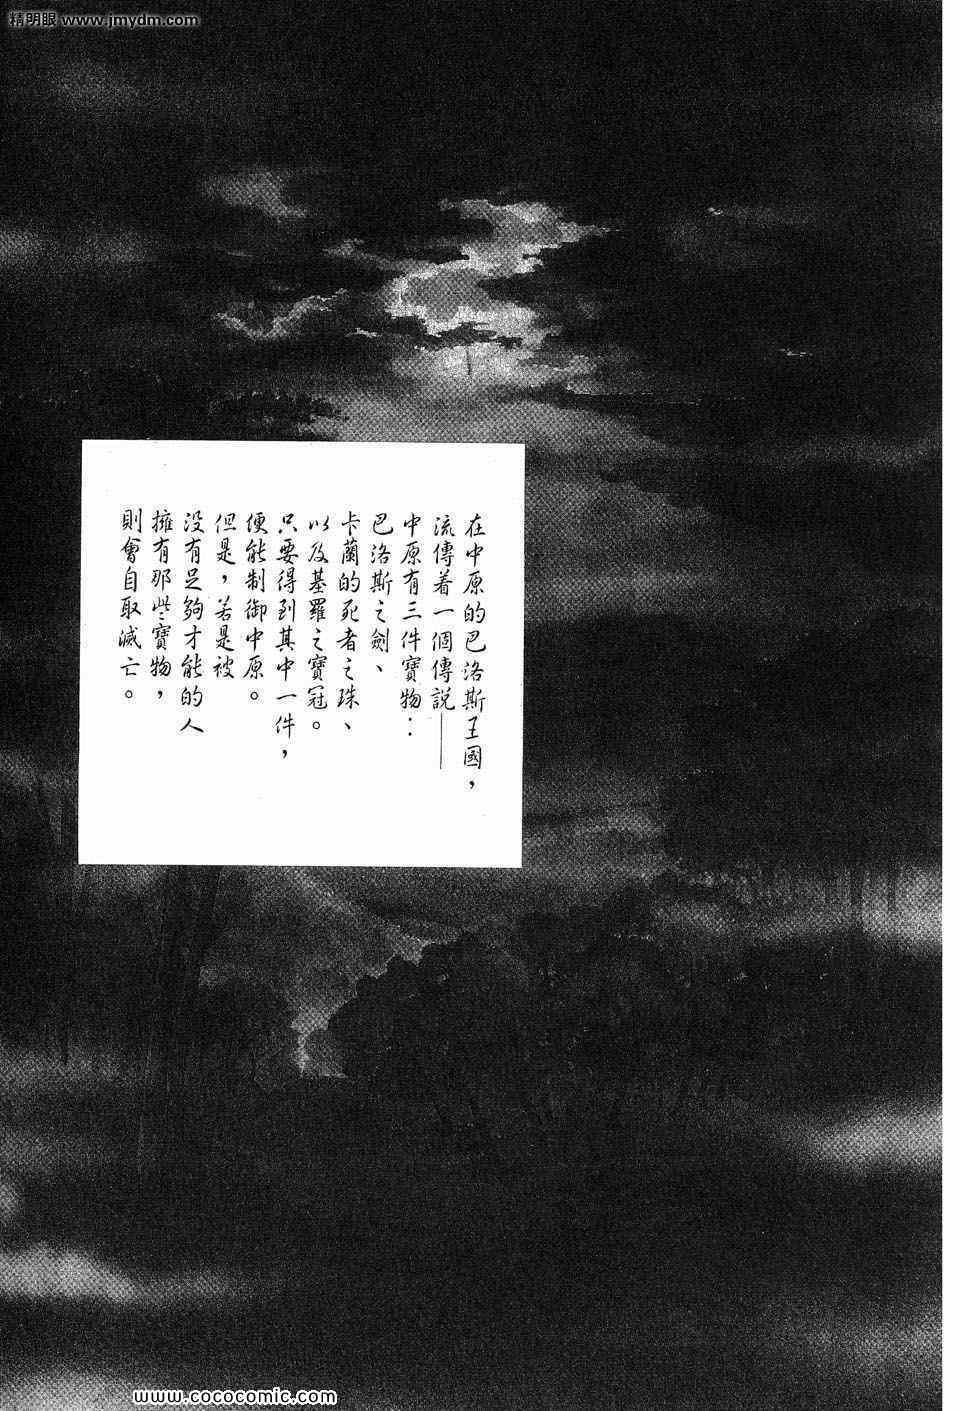 精明眼 www.jmydm.com
在中原的巴洛斯王國，
流傳着一個傳説——
中原有三件寶物：
巴洛斯之劍、
卡蘭的死者之珠、
以及基羅之寶冠。
只要得到其中一件，
便能制御中原。
但是，若是被
没有足夠才能的人
擁有那些寶物，
則會自取滅亡。
www.cococomic.com